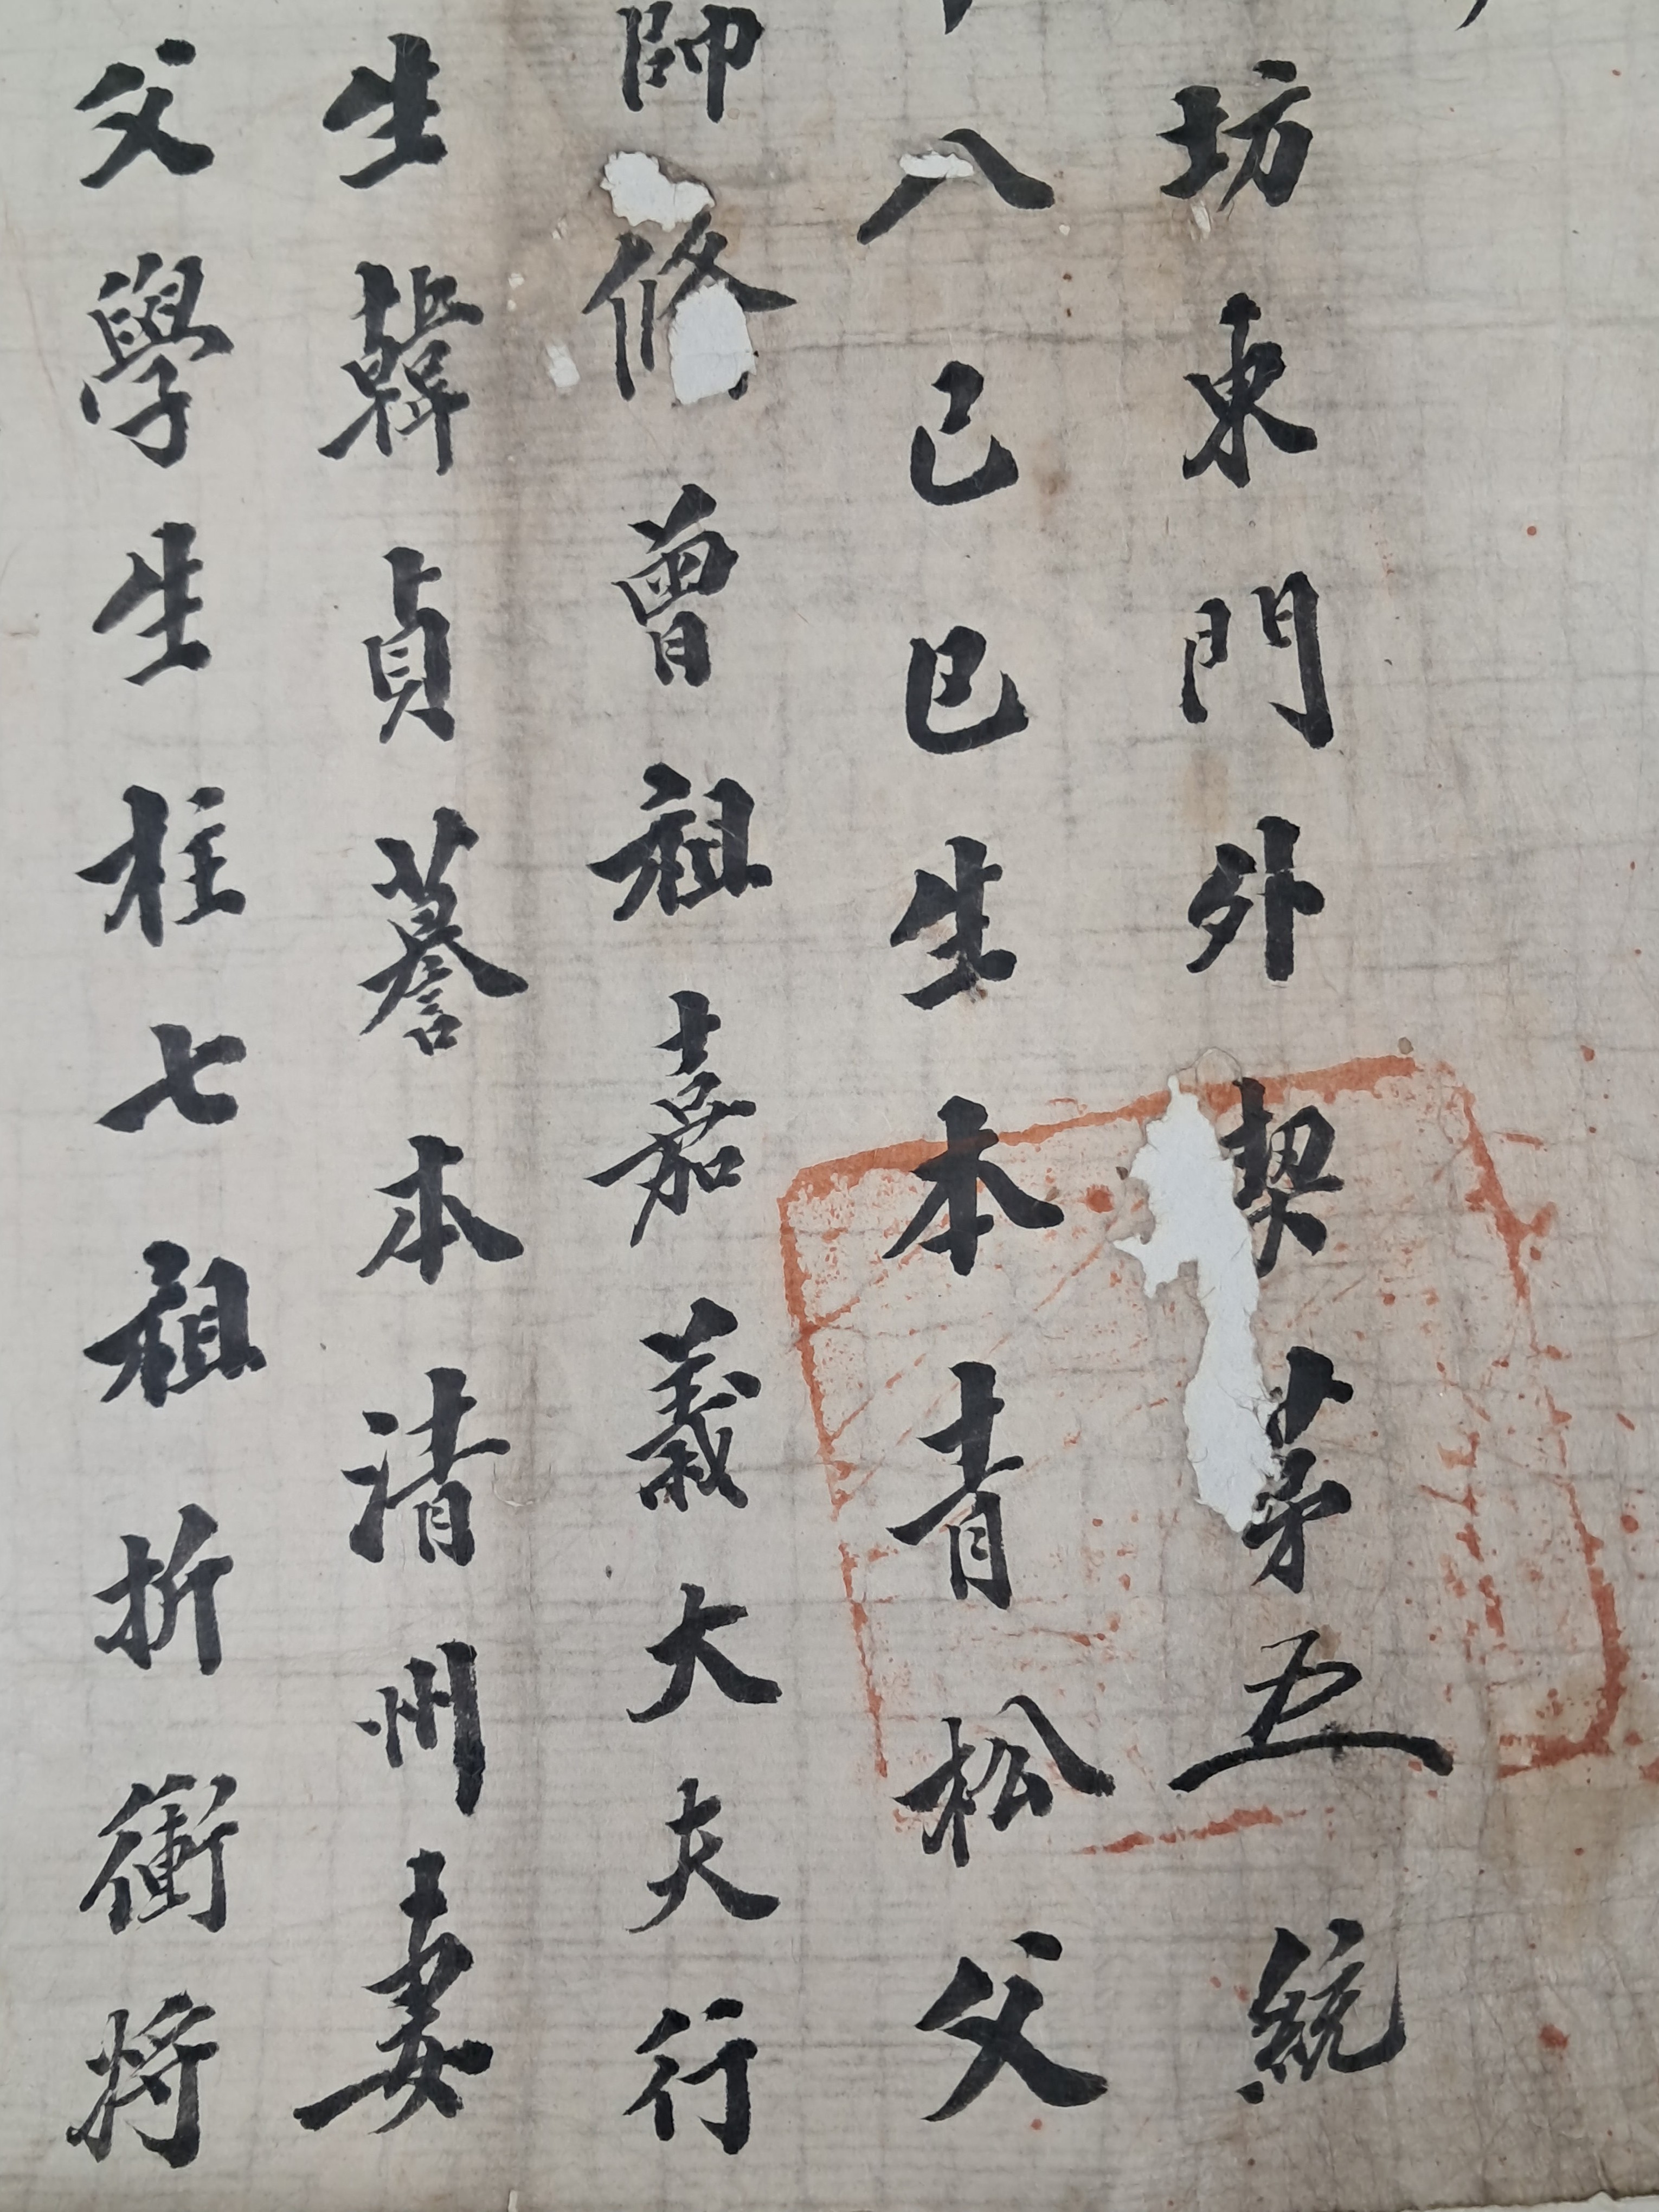 坊東門外契苐五統
八己巳生本青松父
帥修曾祖嘉義大夫行
生韓貞謩本清州妻
父學生柱七祖折衝將